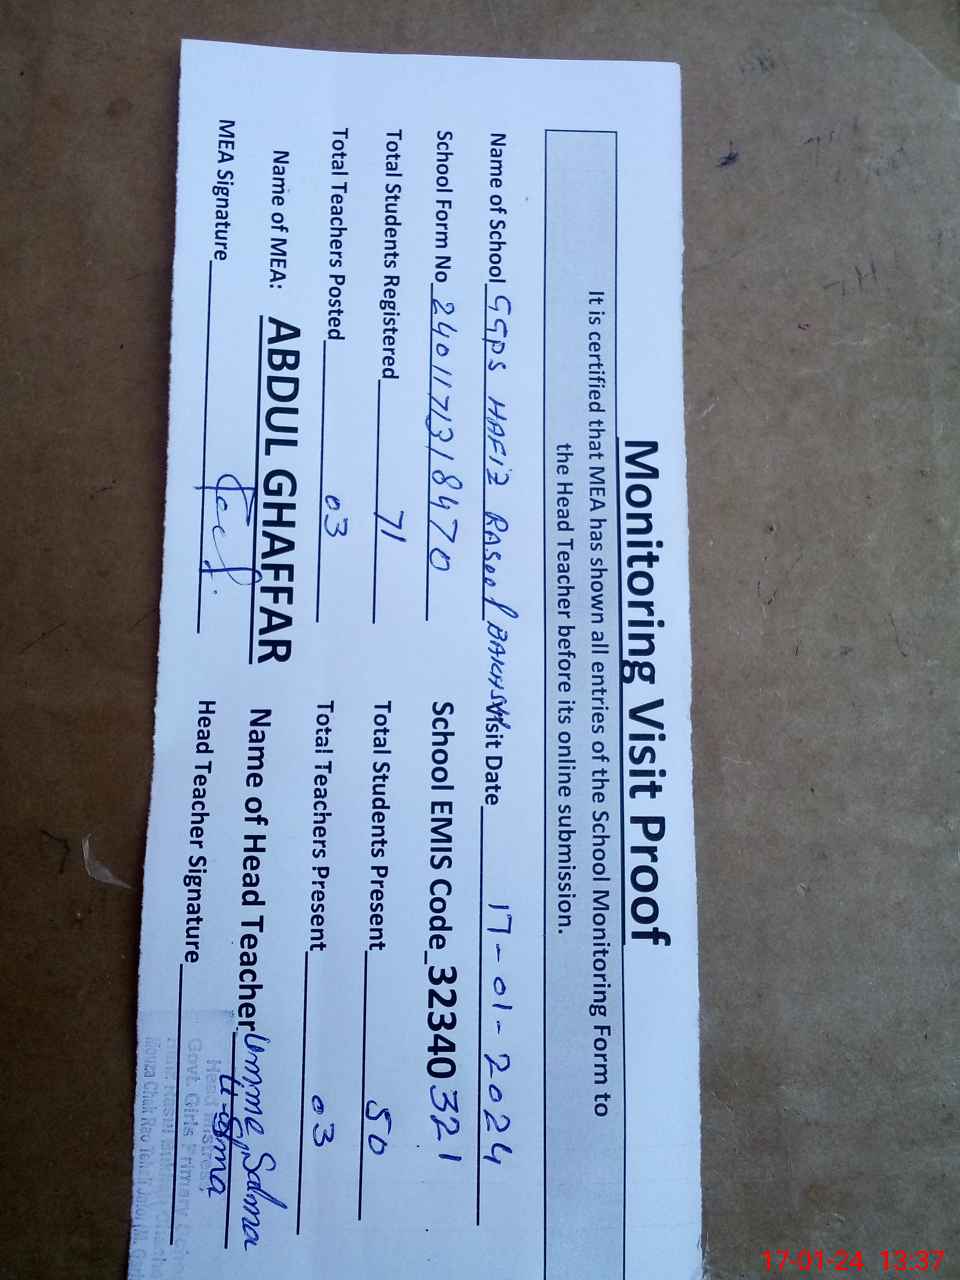 Monitoring Visit Proof
It is certified that MEA has shown all entries of the School Monitoring Form to
the Head Teacher before its online submission.
Name of School GGPS HAFIZ RASOOL BAKHSH Visit Date 17-01-2024
School Form No 240117318470 School EMIS Code_32340321
Total Students Registered 71 Total Students Present 50
Total Teachers Posted 03 Total Teachers Present 03
Name of MEA: ABDUL GHAFFAR Name of Head Teacher Umme Salma
MEA Signature Head Teacher Signature
Head Mistress,
Govt. Girls Primary
Mouza Chak Rao
17-01-24 13:37